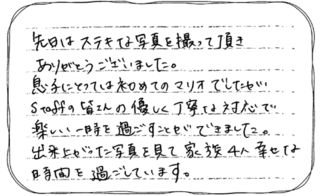 先日はステキな写真を撮って頂き
ありがとうございました。
息子にとっては初めてのマリオでしたが
Staffの皆さんの優しく丁寧な対応で
楽しい一時を過ごすことができました。
出来上がった写真を見て家族4人幸せな
時間を過ごしています。